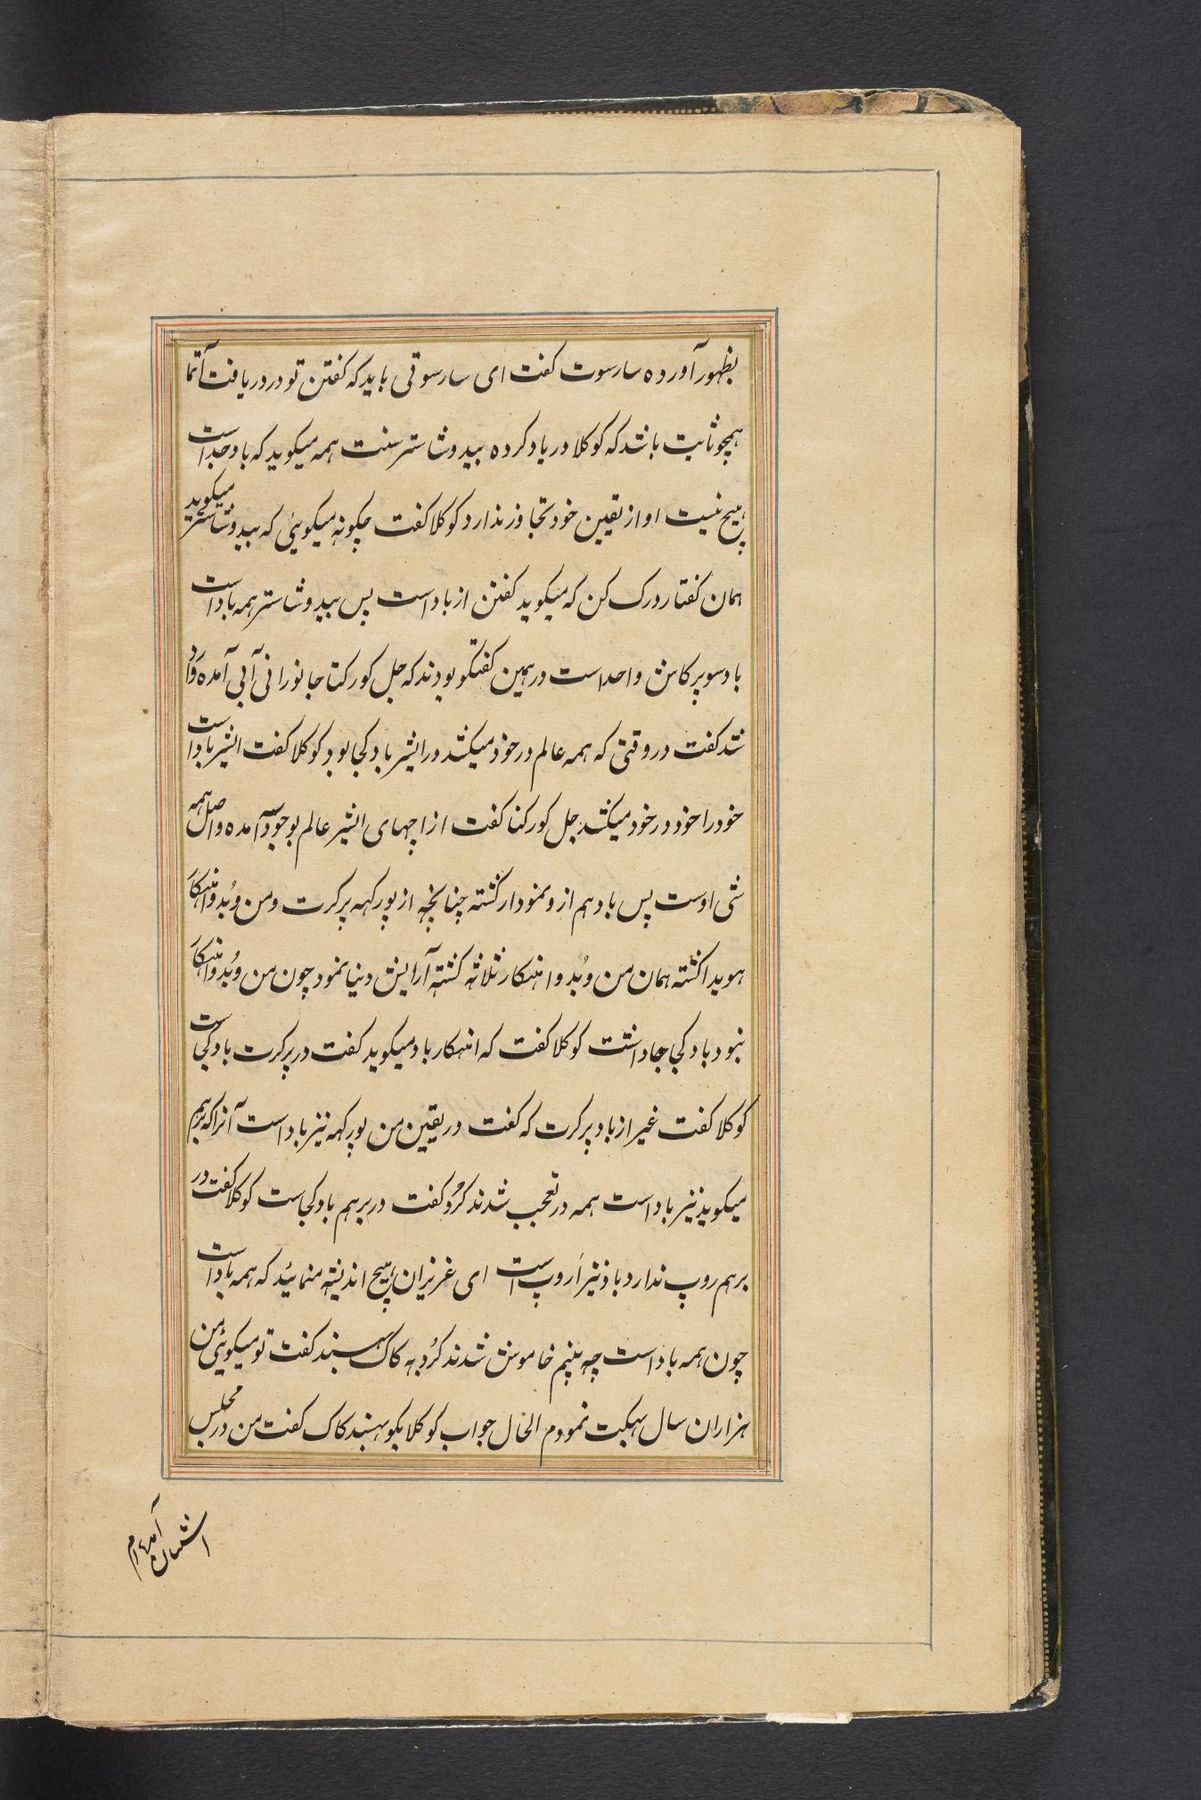 بظهور آورده سارسوت گفت ای سارسوتی باید که گفتن تو در دریافت آتما
همچو ثابت باشد که کوکلا در باد کرده بید و شاستر سنت همه میکوید که باد جدا است
هیچ نیست او از یقین خود تجاوز ندارد کوکلا کفت چکونه میکوئی که بید و شاستر میکوید
همان کفتار درک کن که میکوید کفتن از باد است پس بید و شاستر همه باد است
باد سوپرکاش واحد است در همین کفتکو بودند که جل کورکتا جانورانی آبی آمده وارد
شد کفت در وقتی که همه عالم در خود میکشد در ایشر باد کجا بود کوکلا کفت ایشر باد است
خود را خود در خود میکشد جل کورکتا کفت از اچهای ایشر عالم بوجود آمده و اصل همه
شی اوست پس باد هم از و نمودار کشته چنانچه از پورکهه پرکرت و من و بُد و اهنکار
هویدا کشته همان من و بُد و اهنکار ثلاثه کشته آرایش دنیا نمود چون من و بُد و اهنکار
نبود باد کجا جا داشت کوکلا کفت که اهنکار باد میکوید کفت در پرکرت باد کجاست
کوکلا کفت غیر از باد پرکرت که کفت در یقین من پورکهه نیز باد است آنرا که برهم
میکوید نیز باد است همه در تعجب شدند کرُد کفت در برهم باد کجاست کوکلا کفت در
برهم روپ ندارد باد نیز اَروپ است ای عزیزان هیچ اندیشه منمائید که همه باد است
چون همه باد است چه بینم خاموش شدند کرُد به کاک بهسند کفت تو میکوئی من
هزاران سال بهکت نمودم الحال جواب کوکلا بکو بهسند کاک کفت من در مجلس